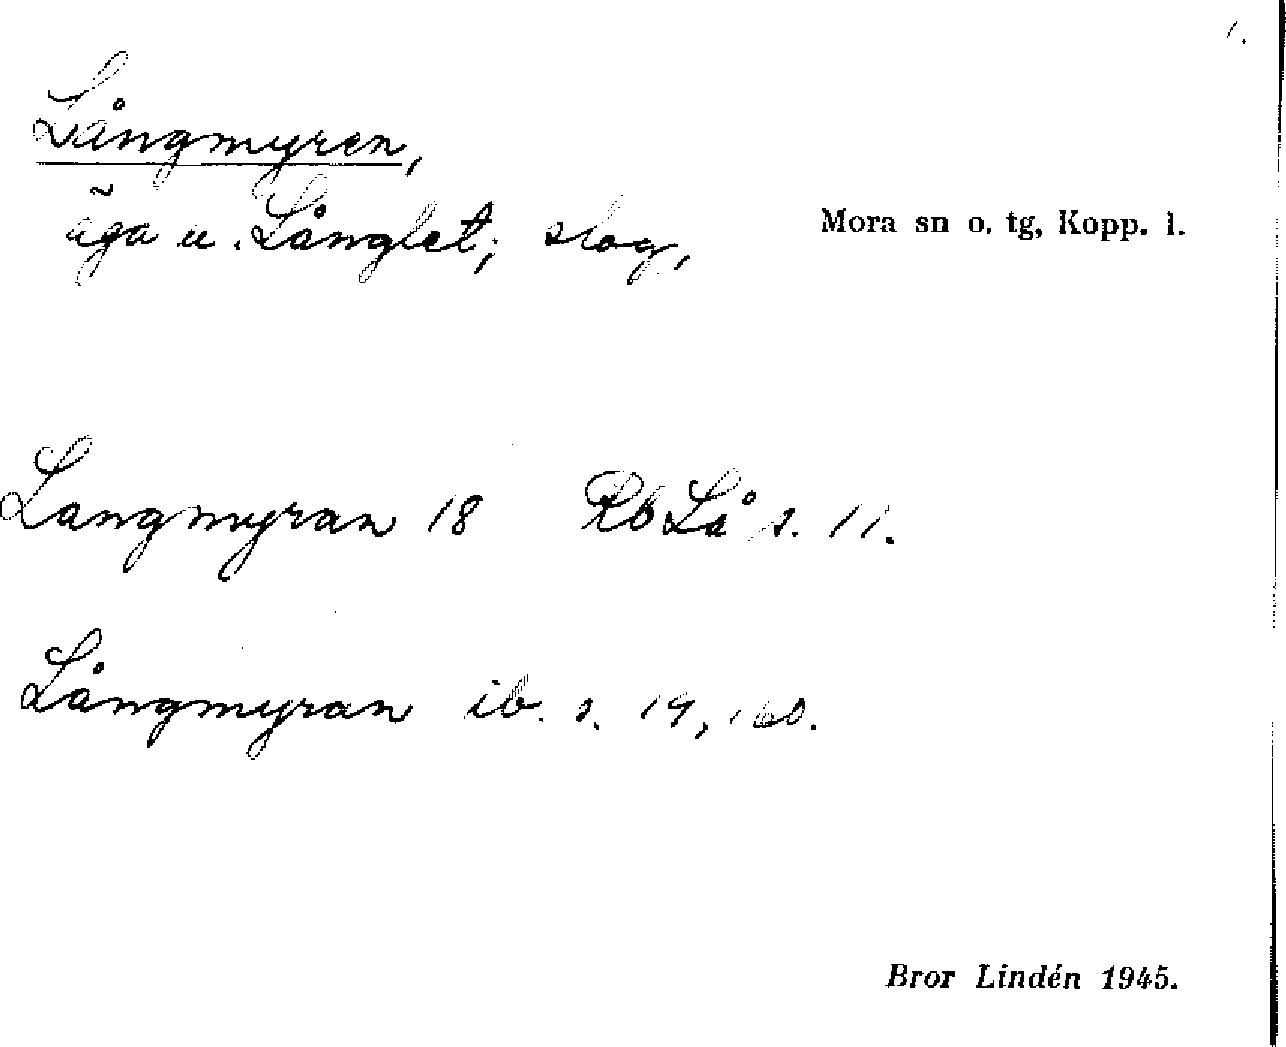 1.
Långmyren,
äga u. Långlet; slog,
Mora sn o. tg, Kopp. l.
Langmyran 18 Rb Lå s. 11.
Långmyran ib. s. 14, 160.
Bror Lindén 1945.